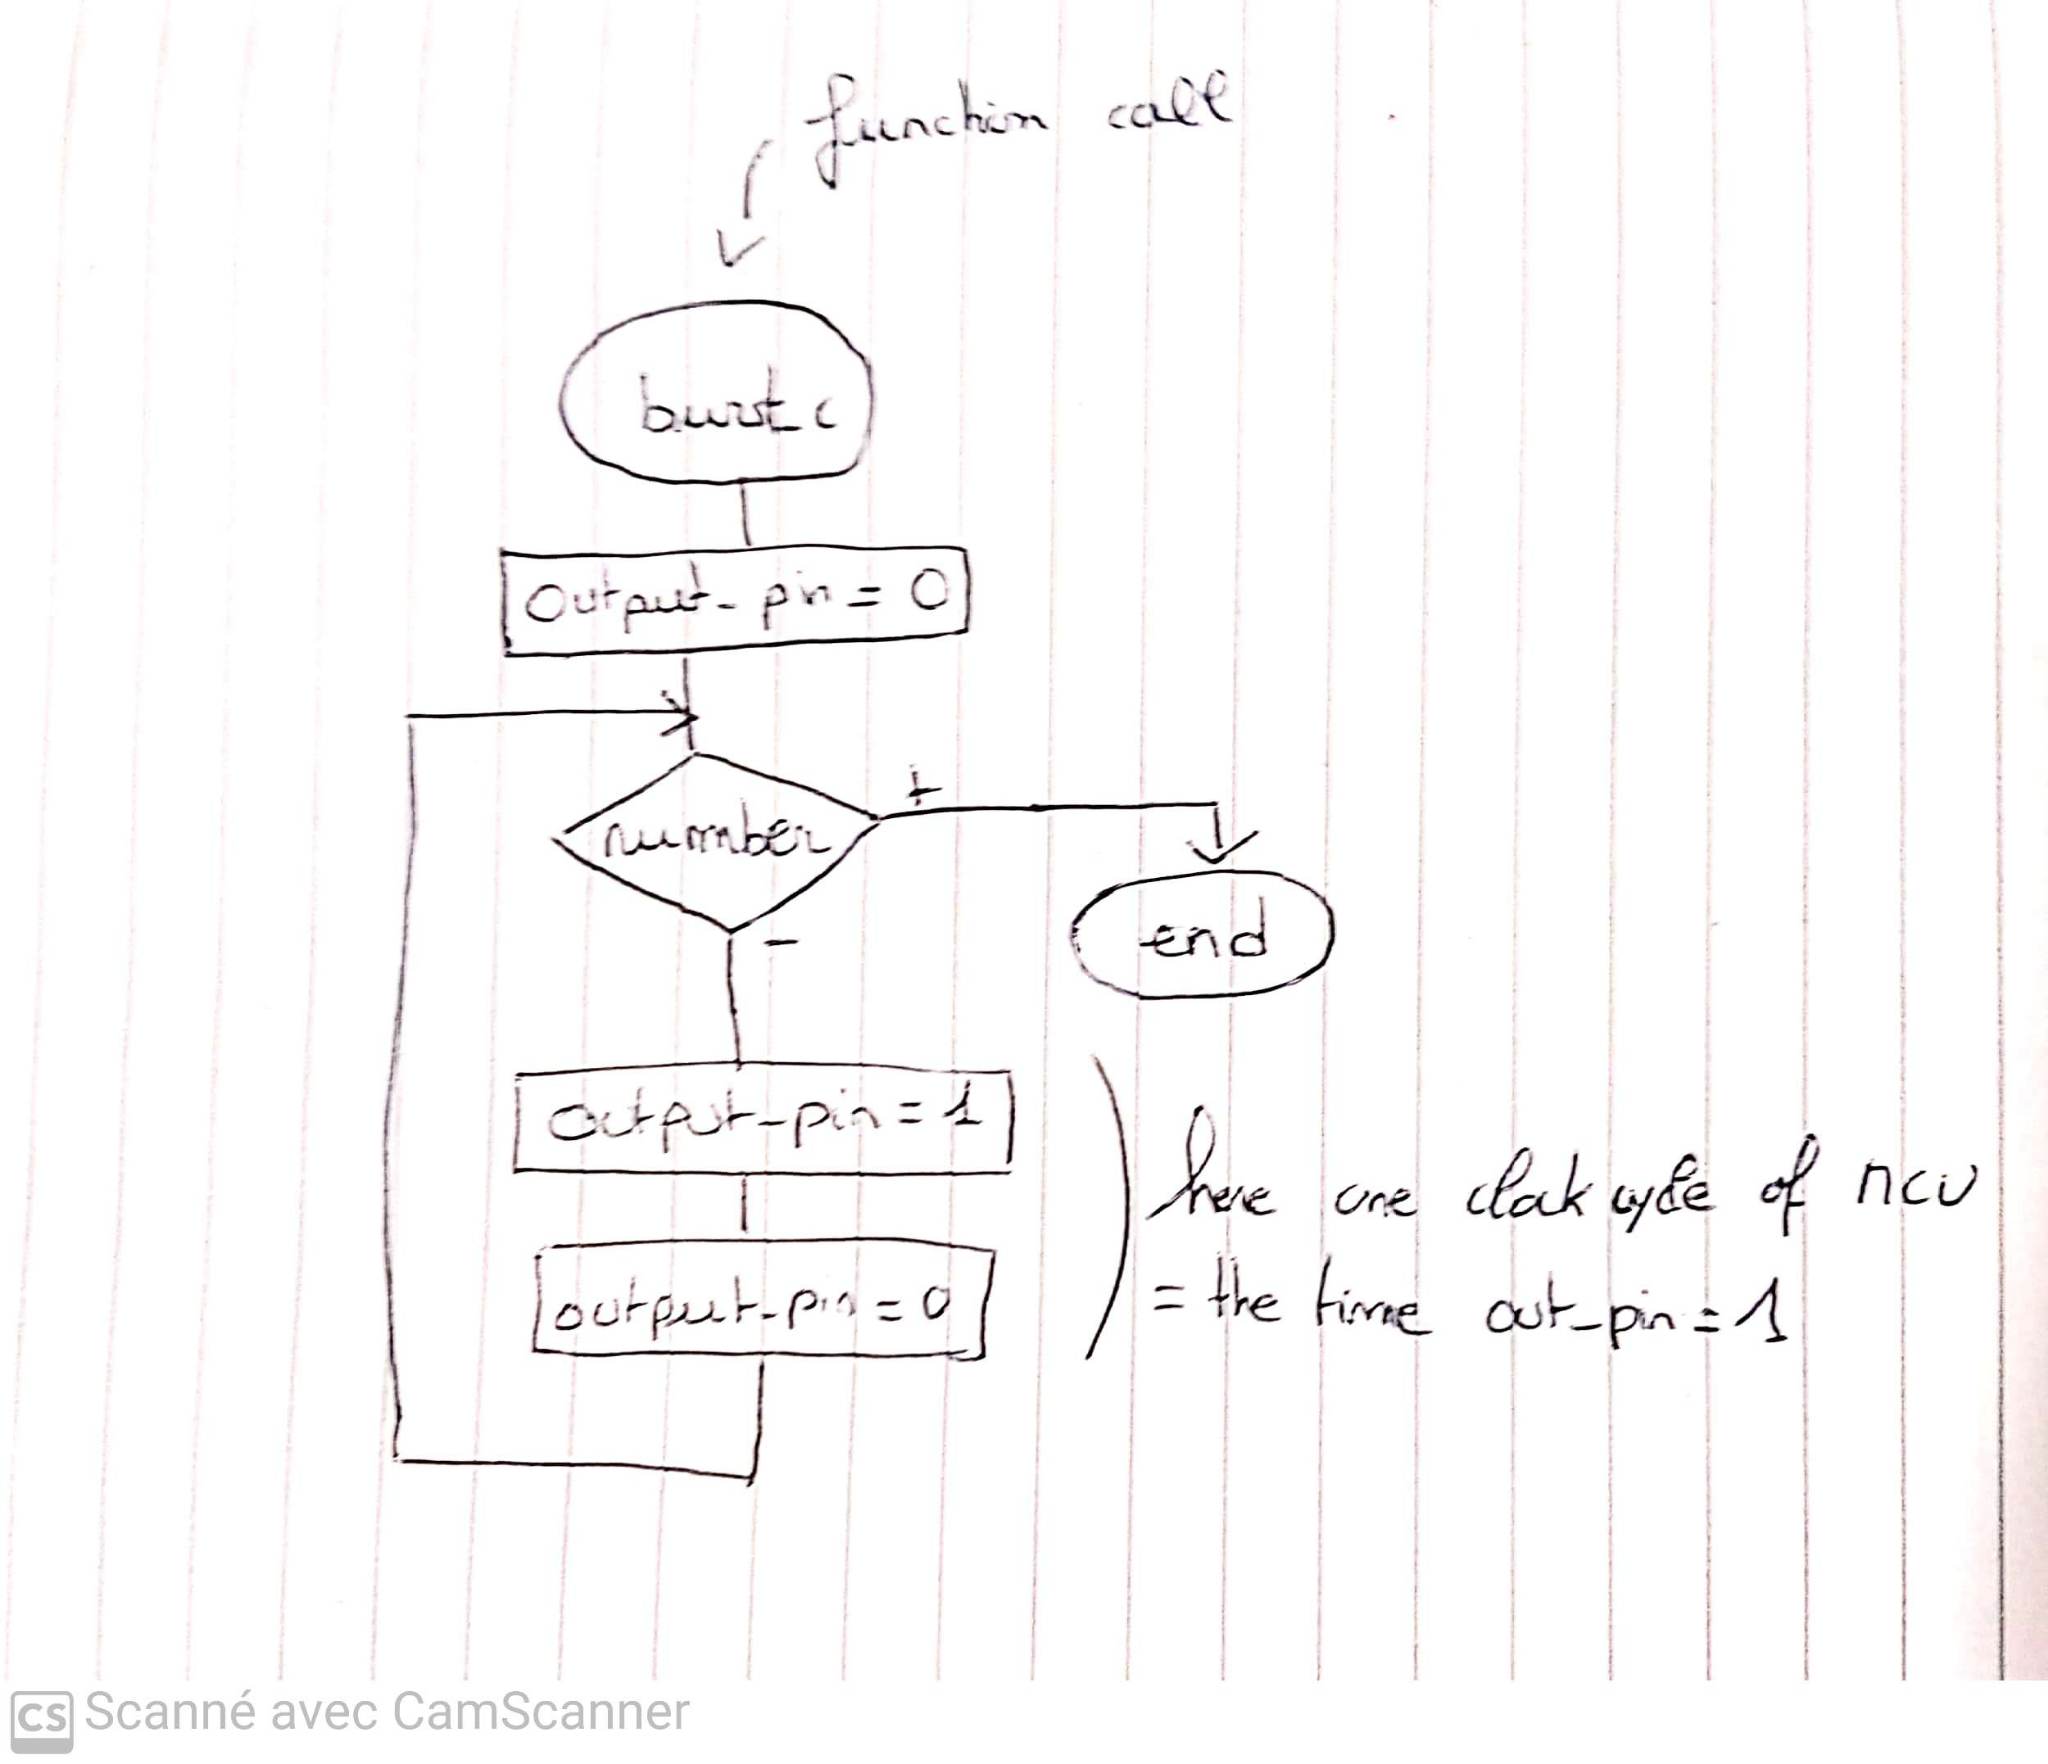 function call
burst_c
Output_pin = 0
number
+
-
end
output_pin = 1
output_pin = 0
here one clock cycle of MCU
= the time out_pin = 1
CS Scanné avec CamScanner